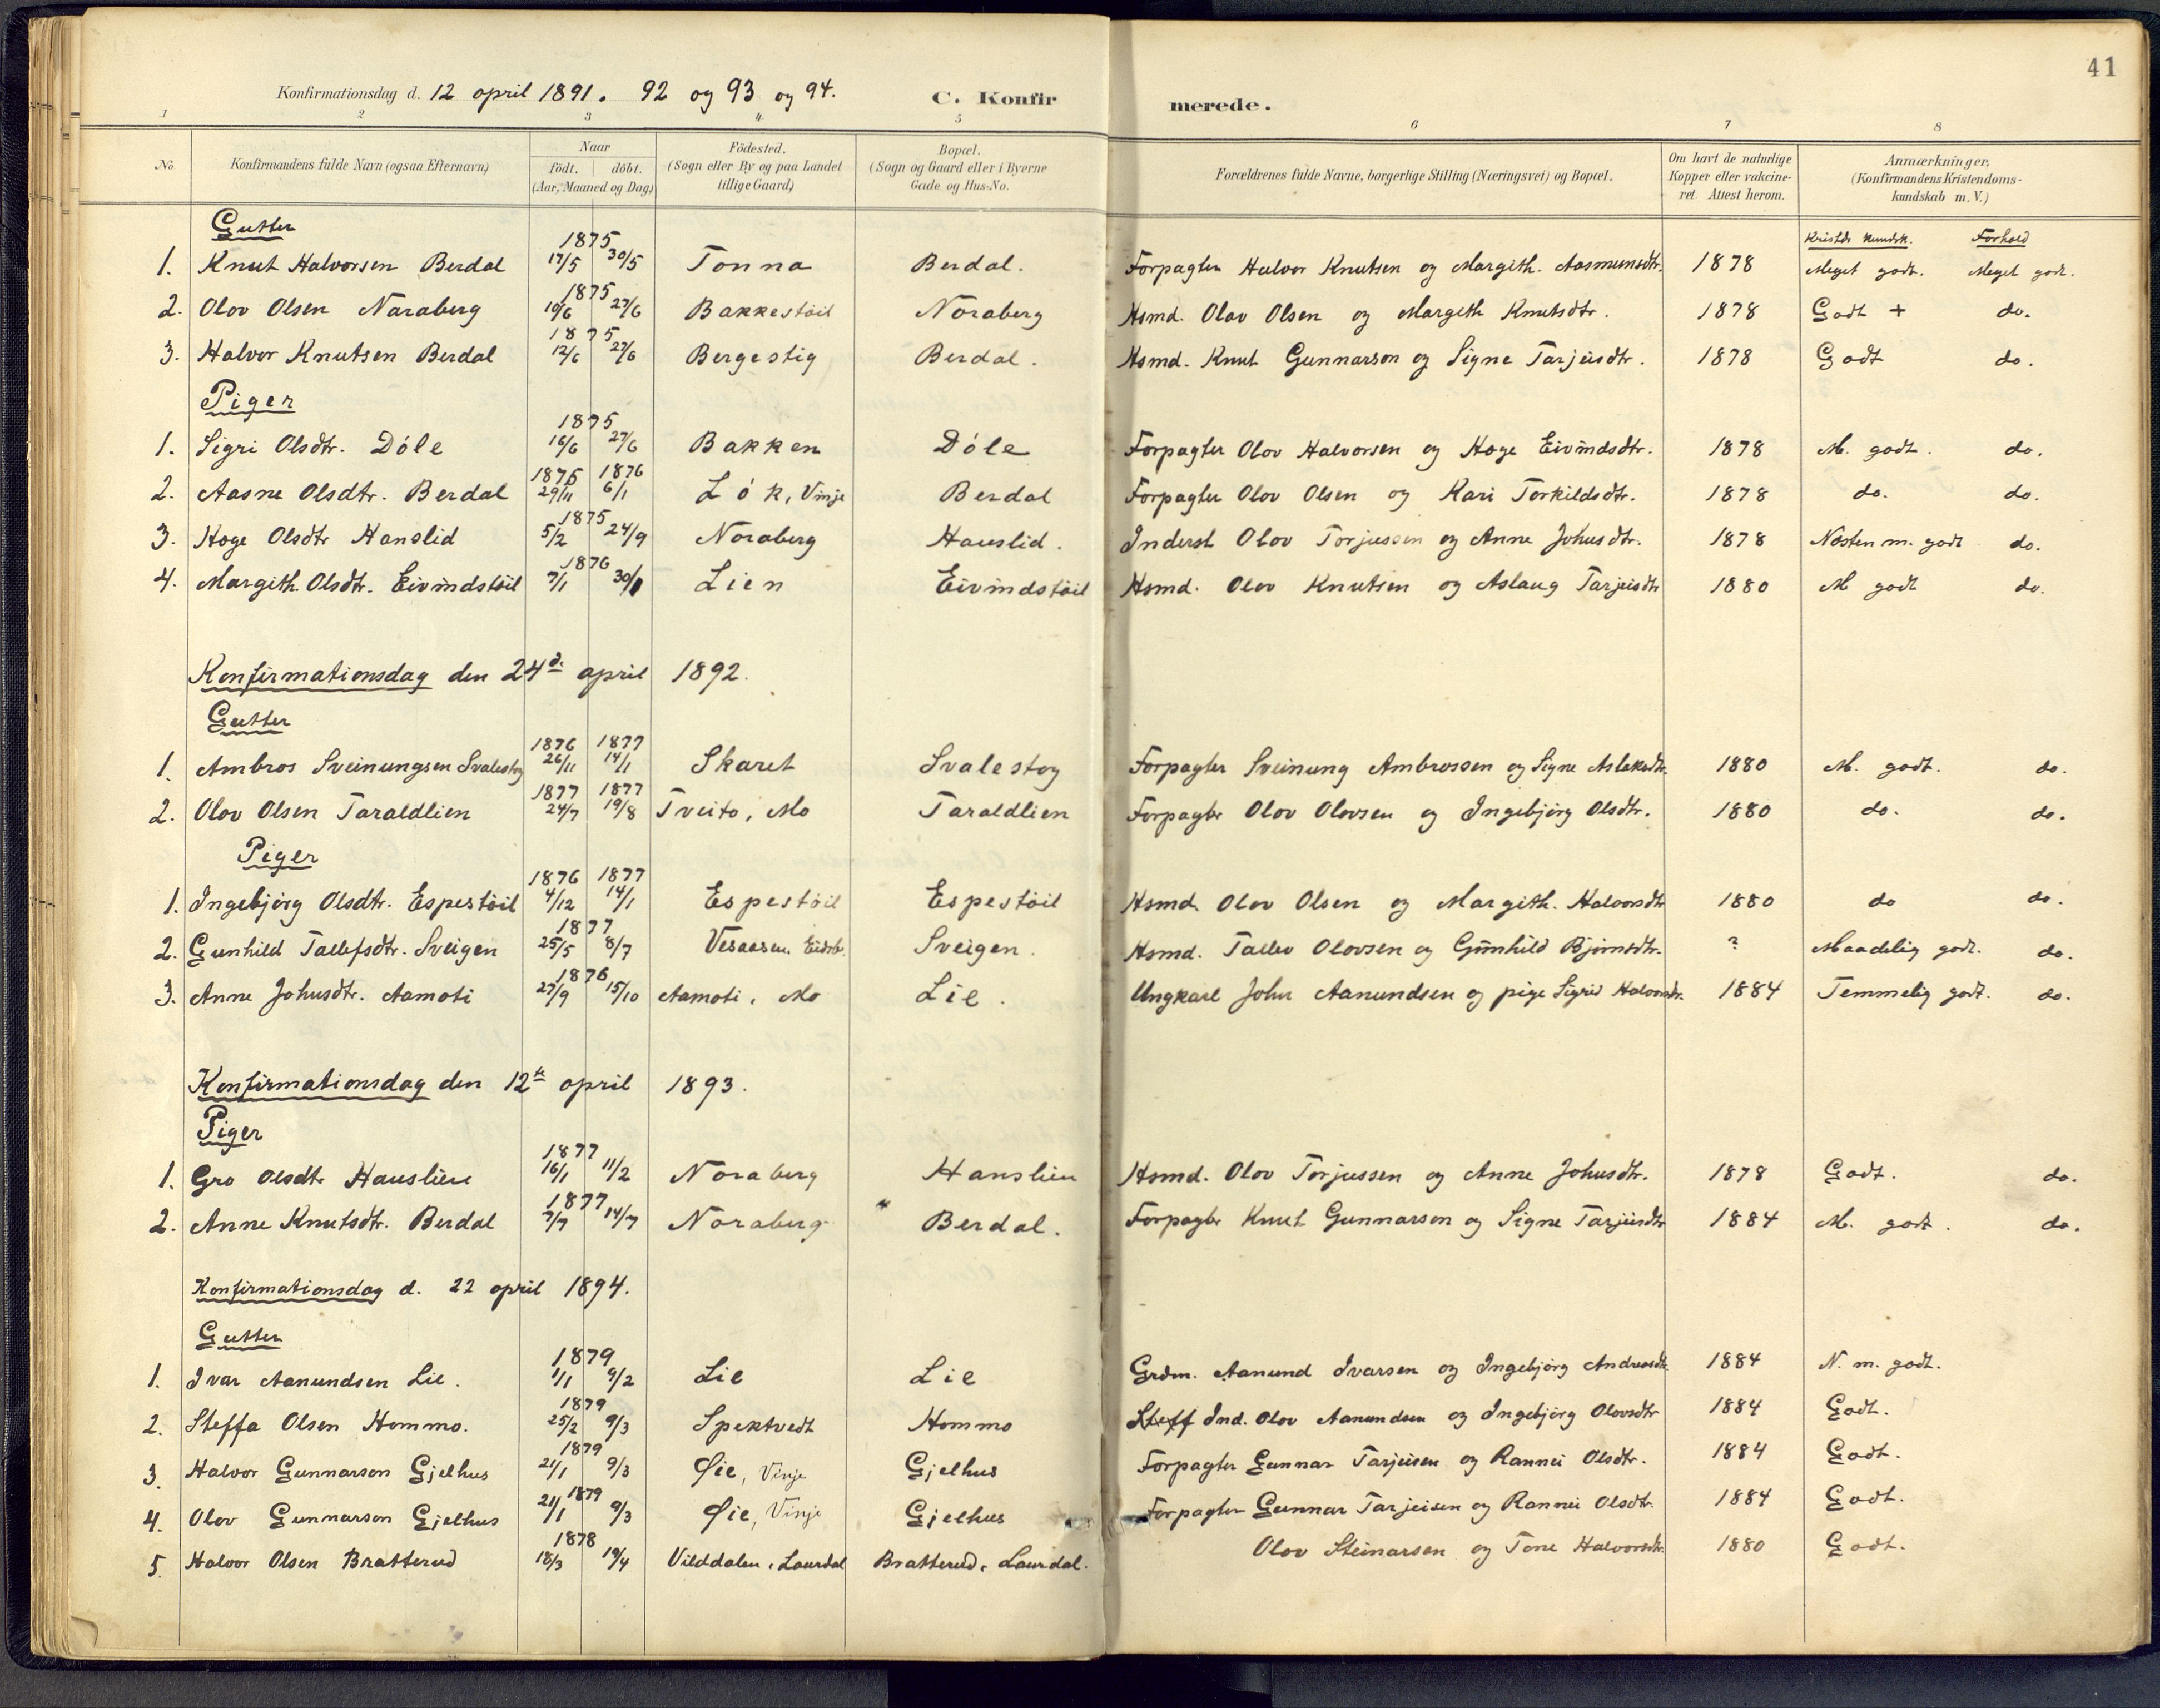 41
Konfirmationsdag d. 12 april 1891. 92 og 93 og 94. C. Konfirmerede.
1 2 3 4 5 6 7 8
No. Konfirmandens fulde Navn (ogsaa Efternavn) Naar födt. döbt. (Aar, Maaned og Dag) Födested. (Sogn eller By og paa Landet tillige Gaard) Bopæl. (Sogn og Gaard eller i Byerne Gade og Hus-No. Forældrenes fulde Navne, borgerlige Stilling (Næringsvei) og Bopæl. Om havt de naturlige Kopper eller vakcineret. Attest herom. Anmærkninger. (Konfirmandens Kristendomskundskab m.V.)
Gutter Kristds kundsk. Forhold
1. Knut Halvorsen Berdal 1875 17/5 30/5 Tonna Berdal. Forpagter Halvor Knutsen og Margith. Aasmunsdtr. 1878 Meget godt. Meget godt.
2. Olov Olsen Noraberg 1875 19/6 27/6 Bakkestöil Noraberg Hsmd. Olav Olsen og Margith Knutsdtr. 1878 Godt + do.
3. Halvor Knutsen Berdal 1875 12/6 27/6 Bergestig Berdal. Hsmd. Knut Gunnarson og Signe Tarjeisdtr. 1878 Godt do.
Piger
1. Sigri Olsdtr. Döle 1875 16/6 27/6 Bakken Döle Forpagter Olov Halvorsen og Hoge Eivindsdtr. 1878 M. godt. do.
2. Aasne Olsdtr. Berdal 1875 29/11 1876 6/1 Lök, Vinje Berdal Forpagter Olov Olsen og Kari Torkildsdtr. 1878 do. do.
3. Hoge Olsdtr Hanslid 1875 5/2 24/9 Noraberg Hauslid. Inderst Olov Torjussen og Anne Johusdtr. 1878 Næsten m. godt do.
4. Margith. Olsdtr. Eivindstöil 1876 7/1 30/1 Lien Eivindstöil Hsmd. Olov Knutsen og Aslaug Tarjeisdtr 1880 M godt do.
Konfirmationsdag den 24d. april 1892.
Gutter
1. Ambros Sveinungsen Svalestog 1876 26/11 1877 14/1 Skaret Svalestog Forpagter Sveinung Ambrossen og Signe Aslaksdtr. 1880 M. godt. do.
2. Olov Olsen Taraldlien 1877 24/7 1877 19/8 Tveito, Mo Taraldlien Forpagter Olov Olovsen og Ingebjörg Olsdtr. 1880 do. do.
Piger
1. Ingebjörg Olsdtr. Espestöil 1876 4/12 1877 14/1 Espestöil Espestöil Hsmd. Olov Olsen og Margith. Halvorsdtr 1880 do do.
2. Gunhild Tallefsdtr. Sveigen 1877 25/5 8/7 Vesaasen, Eidsb. Sveigen. Hsmd. Tallev Olovsen og Gunhild Bjørnsdtr. ? Maadelig godt. do.
3. Anne Johusdtr. Aamoti 1876 27/9 15/10 Aamoti, Mo Lie. Ungkarl John Aanundsen og pige Sigrid Halvorsdtr. 1884 Temmelig godt. do.
Konfirmationsdag den 12te april 1893.
Piger
1. Gro Olsdtr Hauslien 1877 16/1 11/2 Noraberg Hanslien Hsmd. Olov Torjussen og Anne Johusdtr. 1878 Godt. do.
2. Anne Knutsdtr. Berdal 1877 7/7 14/7 Noraberg Berdal. Forpagter Knut Gunnarson og Signe Tarjeisdtr 1884 M. godt. do.
Konfirmationsdag d. 22 april 1894.
Gutter
1. Ivar Aanundsen Lie. 1879 1/1 9/2 Lie Lie Grdm. Aanund Ivarsen og Ingebjörg Andreasdtr. 1884 N. m. godt.
2. Steffa Olsen Hommo. 1879 25/2 9/3 Spektvedt Hommo Steff Ind. Olov Aanundsen og Ingebjörg Olovsdtr 1884 Godt.
3. Halvor Gunnarson Gjelhus 1879 21/1 9/3 Øie, Vinje Gjelhus Forpagter Gunnar Tarjeisen og Rannei Olsdtr. 1884 Godt.
4. Olov Gunnarson Gjelhus 1879 21/1 9/3 Øie, Vinje Gjelhus Forpagter Gunnar Tarjeisen og Rannei Olsdtr. 1884 Godt.
5. Halvor Olsen Bratterud 1878 18/3 19/4 Vilddalen, Laurdal Bratterud, Laurdal. Olov Steinarsen og Tone Halvorsdtr. 1880 Godt.